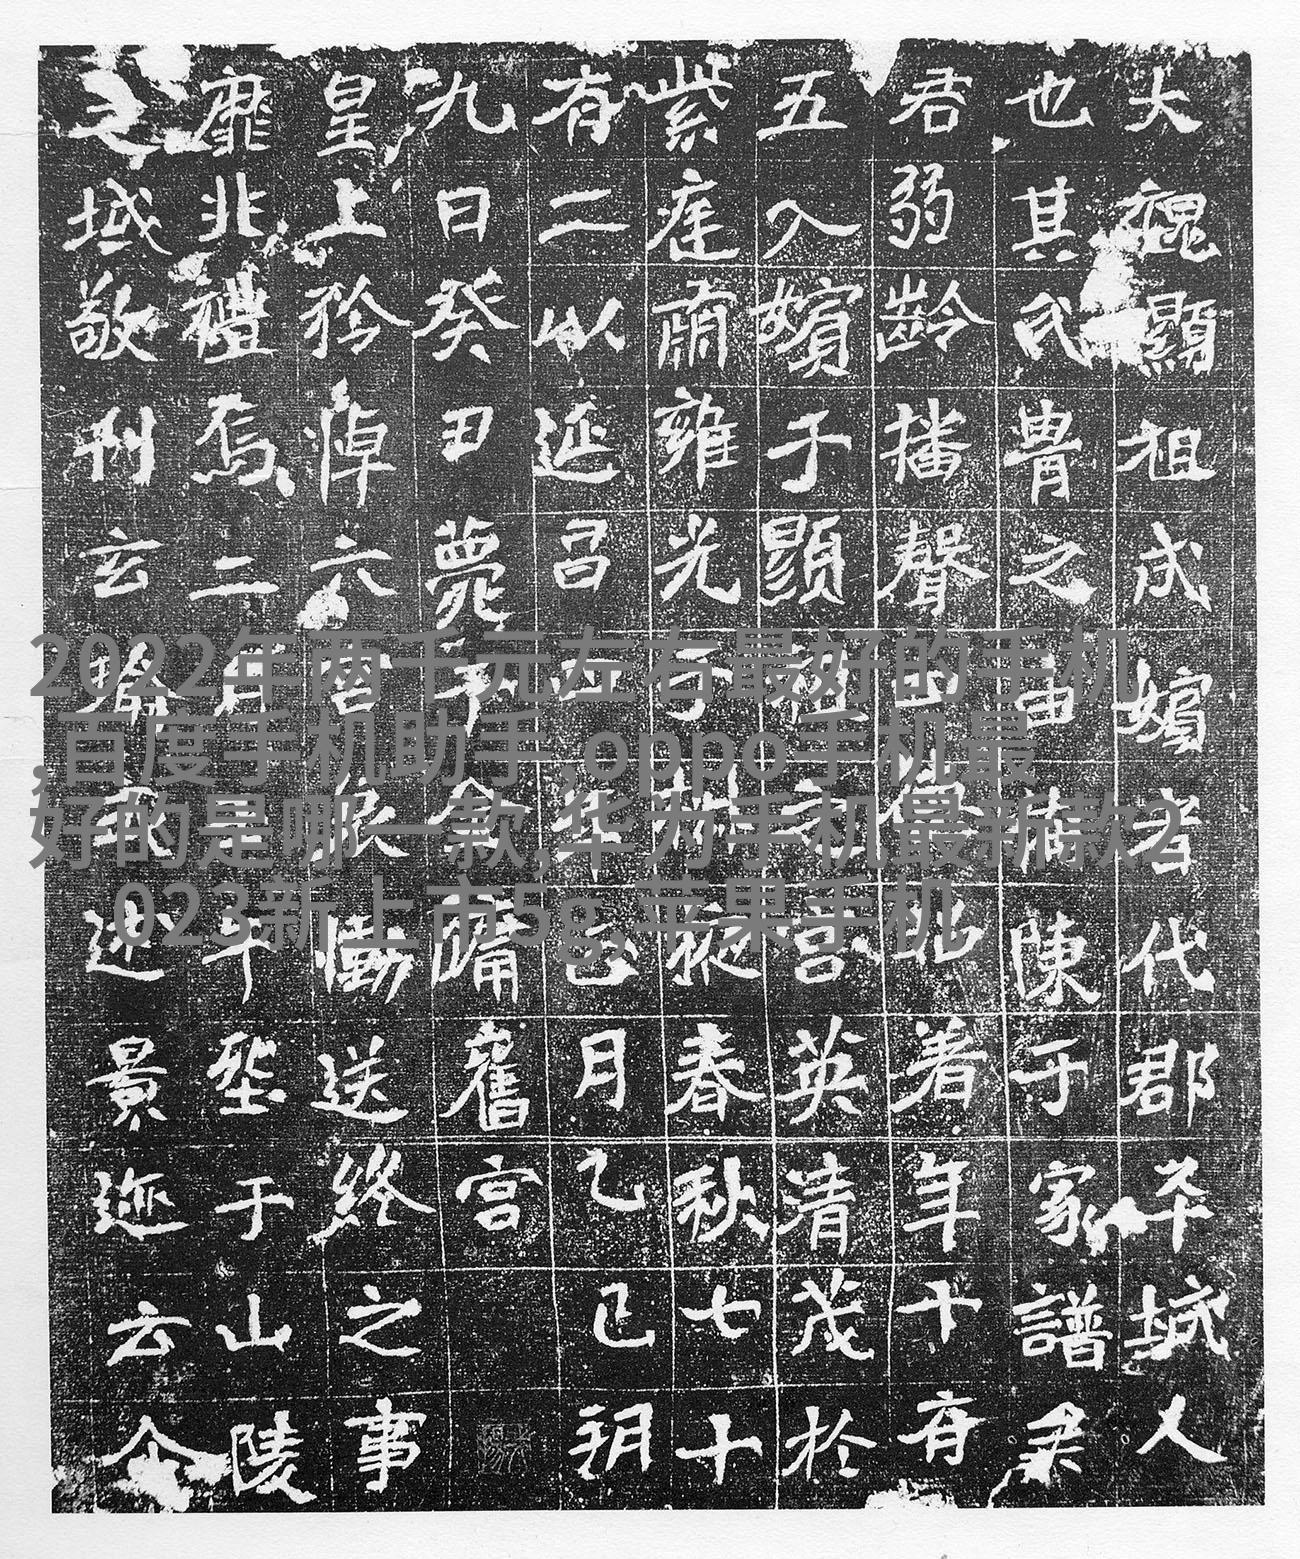 大魏顯祖成嬪者代郡平城人
也其氏胄之由備陳于家譜
君弱齡播聲著年十有
五入嬪于顯祖宮英清茂於
紫庭肅雍光于掖春秋七十
有二以延昌年正月乙巳朔
九日癸丑薨于金墉舊宮
皇上矜悼六宮哀慟送終之事
靡非禮焉二月壬午塟于山陵
之域敬刊玄述景迹云尒
2022年两千元左右最好的手机
,百度手机助手,oppo手机最
好的是哪一款,华为手机最新款2
023新上市5g,苹果手机